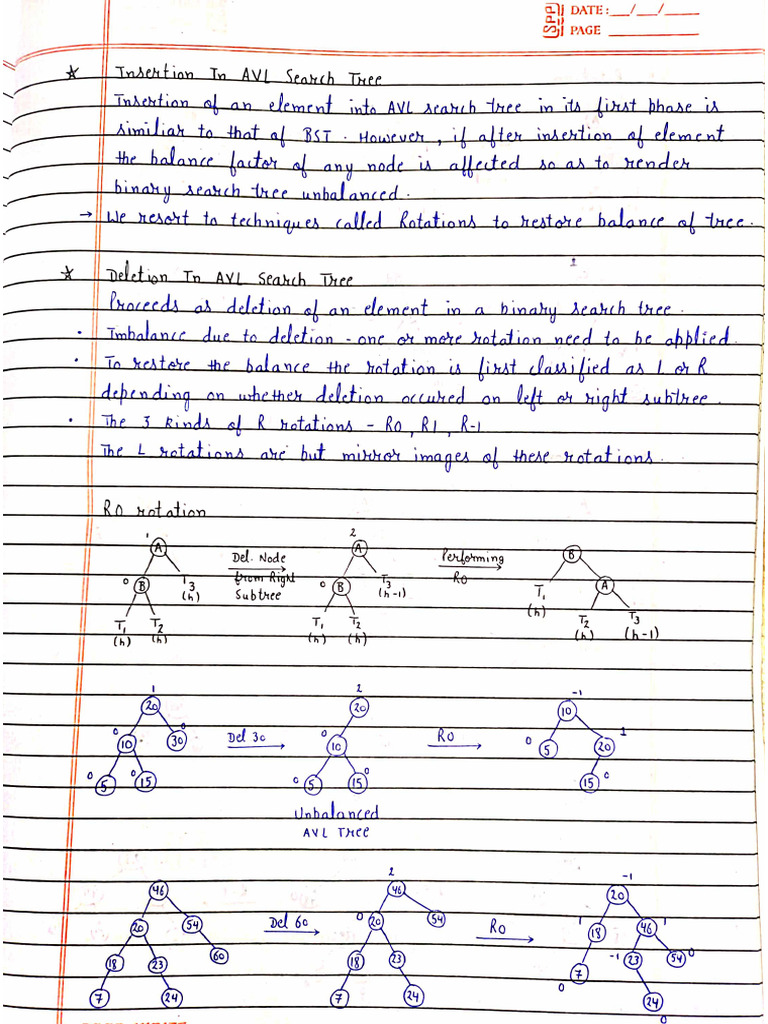 SPP
DATE: __/__/__
PAGE
☆ Insertion In AVL Search Tree
Insertion of an element into AVL search tree in its first phase is
similiar to that of BST. However, if after insertion of element
the balance factor of any node is affected so as to render
binary search tree unbalanced.
→ We resort to techniques called Rotations to restore balance of tree.
☆ Deletion In AVL Search Tree
Proceeds as deletion of an element in a binary search tree.
• Imbalance due to deletion - one or more rotation need to be applied.
• To restore the balance the rotation is first classified as L or R
depending on whether deletion occured on left or right subtree.
• The 3 kinds of R rotations - R0, R1, R-1
The L rotations are but mirror images of these rotations.
R0 rotation
1 A 0 B T3 (h) T1 (h) T2 (h)
Del. Node from Right Subtree
2 A 0 B T3 (h-1) T1 (h) T2 (h)
Performing R0
B T1 (h) A T2 (h) T3 (h-1)
1 20 0 10 0 30 0 5 0 15
Del 30
2 20 0 10 0 5 0 15
Unbalanced
AVL Tree
R0
-1 10 0 5 1 20 0 15
46 20 54 18 23 60 7 24
Del 60
2 46 0 20 54 18 23 7 24
R0
-1 20 1 18 1 46 0 7 -1 23 0 54 24 0